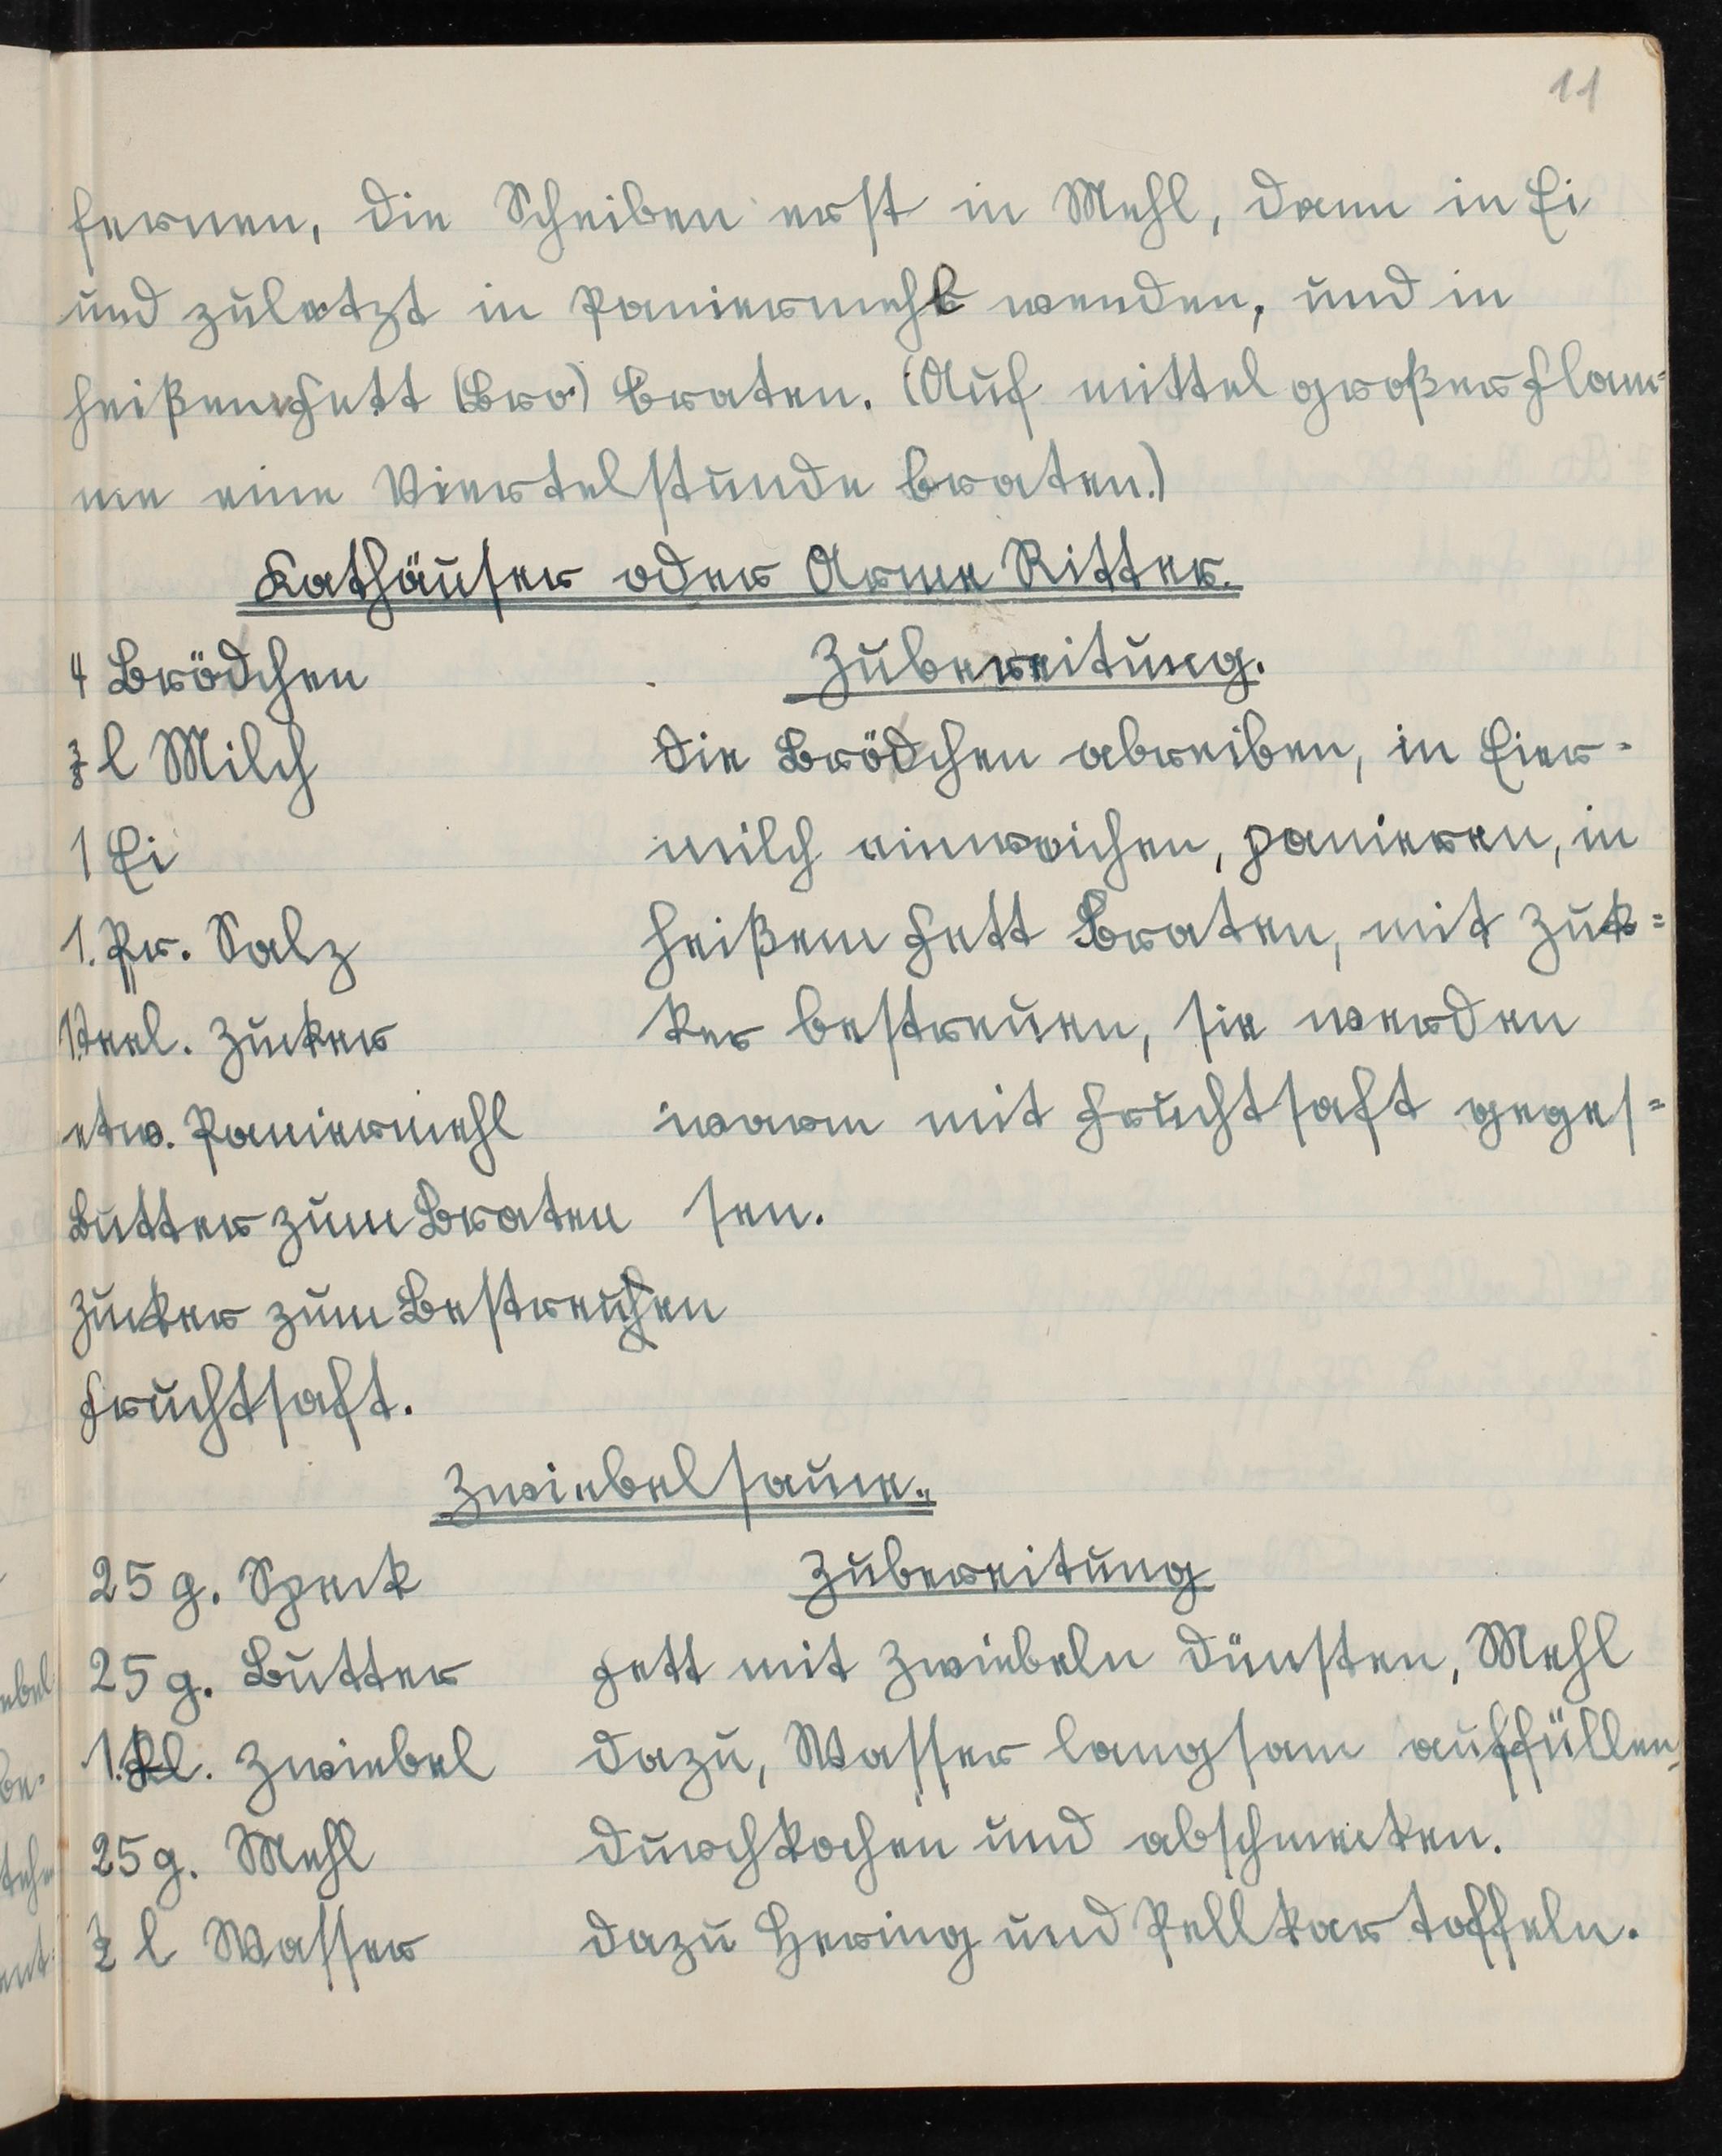 11
fernen, die Scheiben erst in Mehl, dann in Ei
und zuletzt in Paniermehl wenden, und in
heißem Fett braten. (Auf mittel großer Flam-
me eine Viertelstunde braten.)
Kathäuser oder Arme Ritter.
4 Brödchen
3/8 l Milch
1 Ei
1. Pr. Salz
1 Teel. Zucker
etw. Paniermehl
Butter zum Braten
Zucker zum Bestreuen
Fruchtsaft.
Zubereitung.
Die Brödchen abreiben, in Eier=
milch einweichen, panieren, in
heißem Fett Braten, mit Zuk=
ker bestreuen, sie werden
warm mit Fruchtsaft geges=
sen.
Zwiebelsauce.
25 g. Speck
25 g. Butter
1. Kl. Zwiebel
25 g. Mehl
1/2 l Wasser
Zubereitung
Fett mit Zwiebeln dünsten, Mehl
dazu, Wasser langsam auffüllen,
durchkochen und abschmecken.
dazu Hering und Pellkartoffeln.